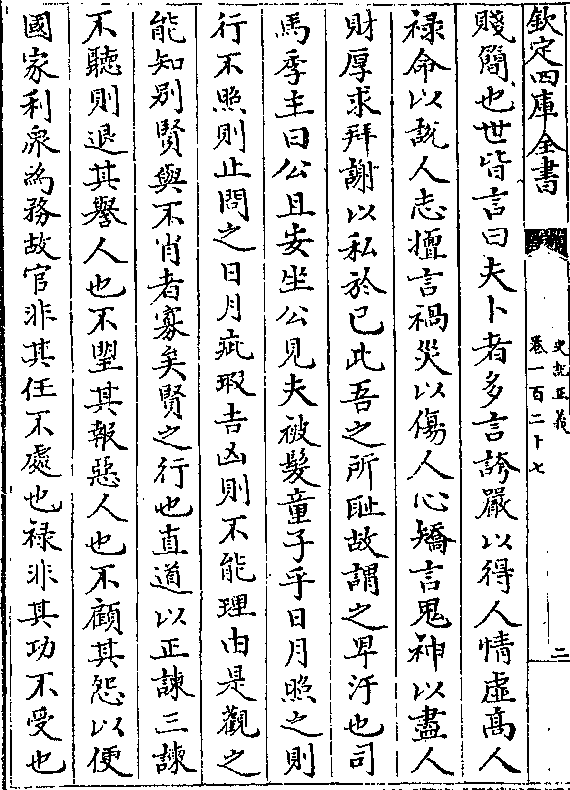 欽定四庫全書
史記正義
卷一百二十七
二
賤簡也世皆言曰夫卜者多言誇嚴以得人情虛高人
禄命以說人志擅言禍災以傷人心矯言鬼神以盡人
財厚求拜謝以私於已此吾之所恥故謂之卑汙也司
馬季主曰公且安坐公見夫被髮童子乎日月照之則
行不照則止問之日月疵瑕吉凶則不能理由是觀之
能知别賢與不肖者寡矣賢之行也直道以正諫三諫
不聽則退其譽人也不望其報惡人也不顧其怨以便
國家利衆為務故官非其任不處也禄非其功不受也